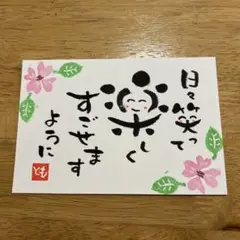 日々笑って
楽しく
すごせます
ように
とも